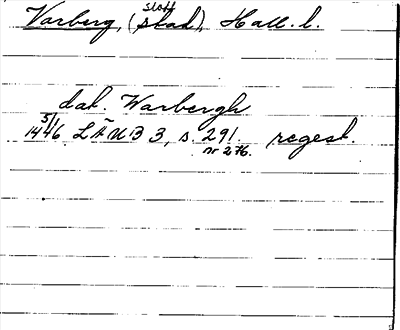 Varberg, (slott stad), Hall. l.
dat. Warbergh
5/1 1446 LÄUB 3, s. 291. regest.
nr 276.